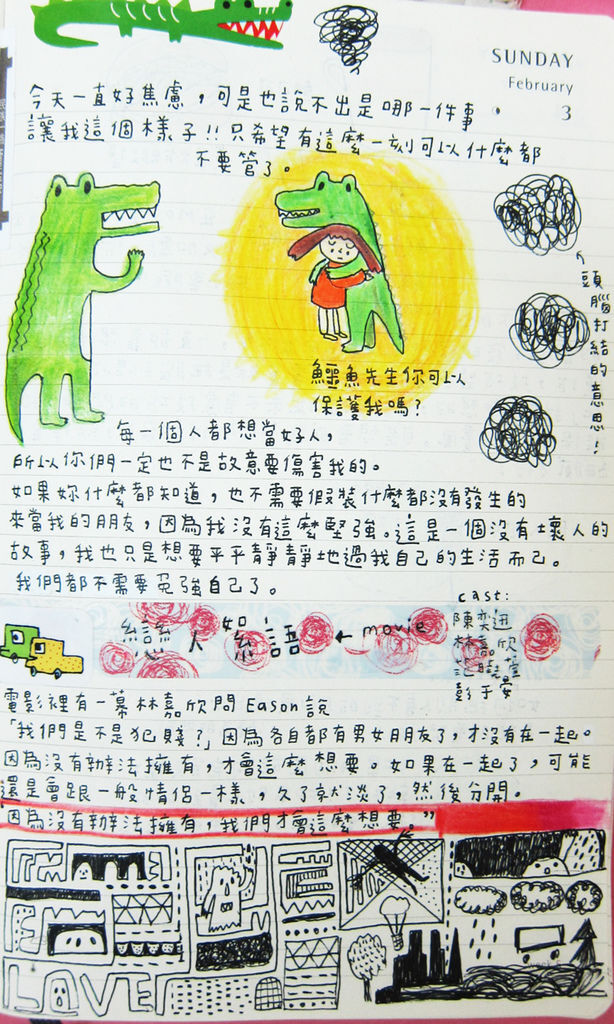 SUNDAY
February
3
今天一直好焦慮，可是也說不出是哪一件事
讓我這個樣子!!只希望有這麼一刻可以什麼都
不要管了。
頭腦打結的意思!
鱷魚先生你可以
保護我嗎?
每一個人都想當好人，
所以你們一定也不是故意要傷害我的。
如果妳什麼都知道，也不需要假裝什麼都沒有發生的
來當我的朋友，因為我沒有這麼堅強。這是一個沒有壞人的
故事，我也只是想要平平靜靜地過我自己的生活而已。
我們都不需要勉強自己了。
戀人絮語 ← movie
cast:
陳奕迅
林嘉欣
范曉萱
彭于晏
電影裡有一幕林嘉欣問Eason說
「我們是不是犯賤?」因為各自都有男女朋友了，才沒有在一起。
因為沒有辦法擁有，才會這麼想要。如果在一起了，可能
還是會跟一般情侶一樣，久了就淡了，然後分開。
因為沒有辦法擁有，我們才會這麼想要。”
LOVE